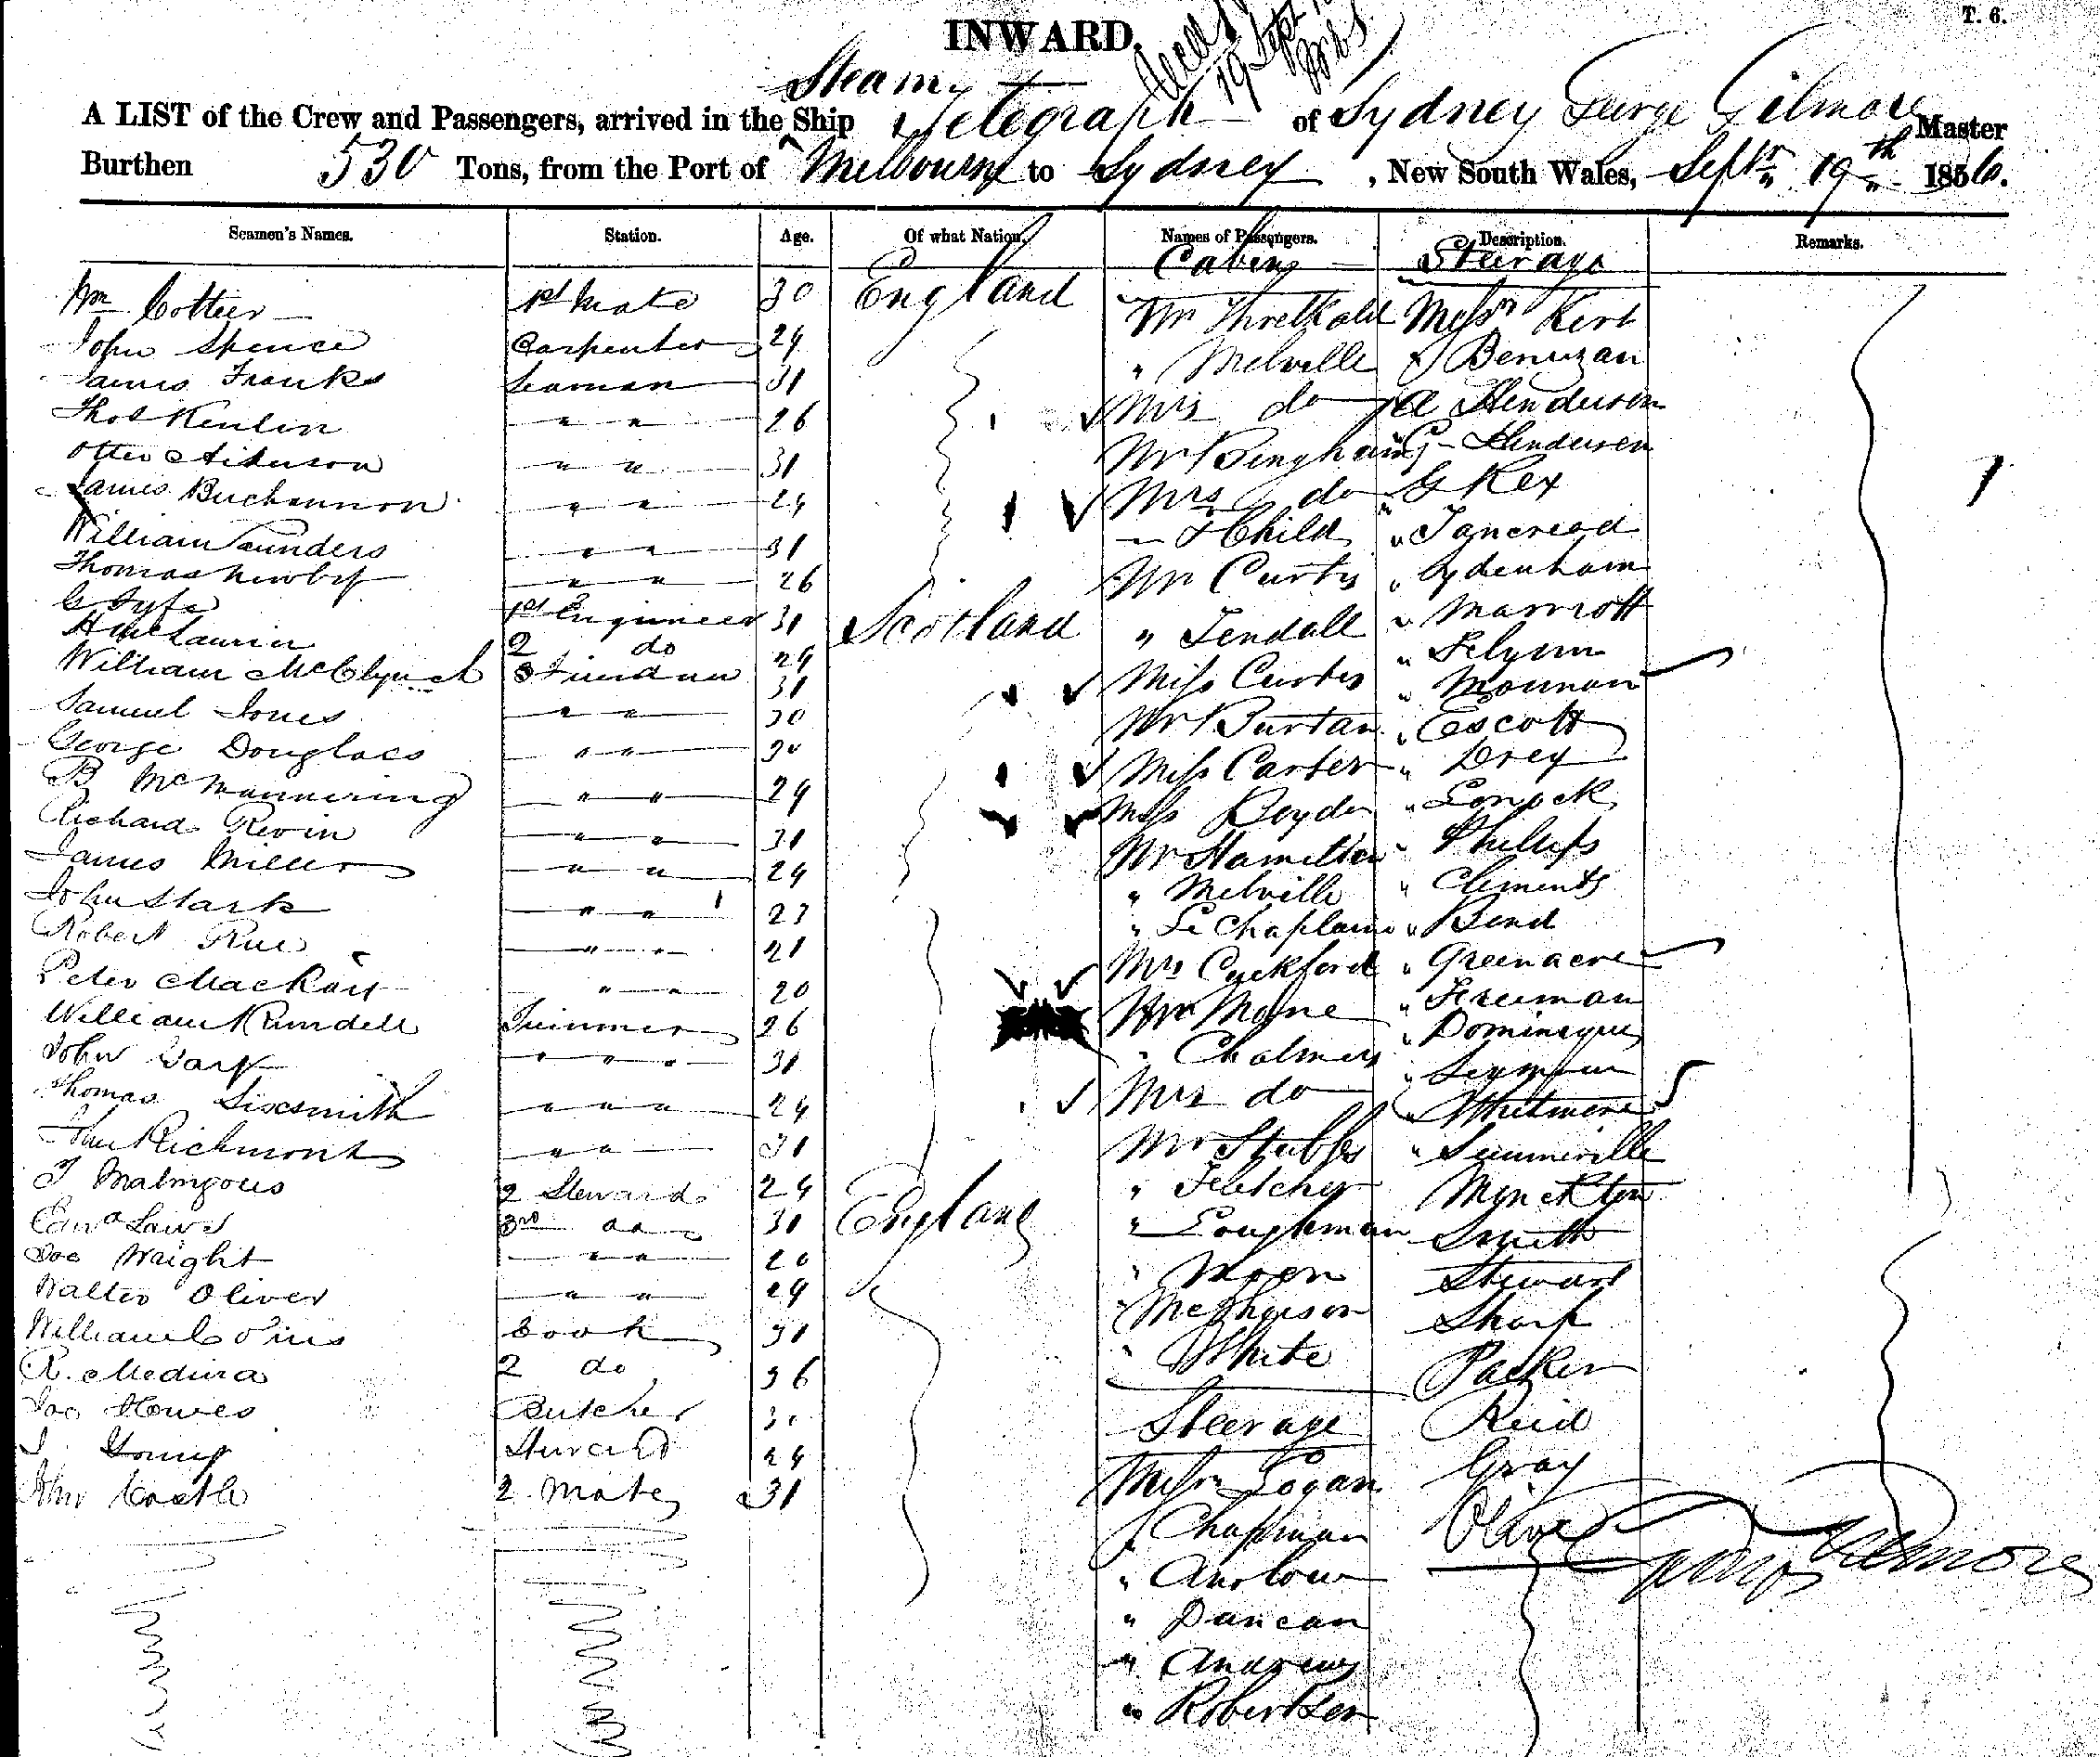 T. 6.
INWARD.
19 Sept
Steam
A LIST of the Crew and Passengers, arrived in the Ship Telegraph of Sydney George Gilmore Master
Burthen 530 Tons, from the Port of Melbourne to Sydney, New South Wales, Septr 19th 1856.
Seamen's Names. Station. Age. Of what Nation. Names of Passengers. Description. Remarks.
Cabins Steerage
Wm Cottier 1st Mate 30 England Mr Threlkald Messrs Kerb
John Spence Carpenter 29 " Melville Benuzan
James Franks Seaman 31 Mrs do A Henderson
Thos Kenlin " " 26 Mr Bingham G Henderson
Otter Aitkuson " " 31 Mrs do G Rex
James Buchannon " " 29 & Child " Tancread
William Saunders " " 31 Mr Curtis " Sydenham
Thomas Newby " " 26 " Tendall " Marriott
G Fyfe 1st Engineer 31 Scotland Miss Curtis " Felynn
A McLaurin 2 do 29 Mr Burtan " Mounan
William McClynch Firedman 31 Miss Carter " Escott
Samuel Jones " " 30 Miss Boyden " Drey
George Douglass " " 30 Mr Hamilton " Conock
B McMannering " " 29 " Melville " Phillips
Richard Revin " " 31 " Le Chaplain " Climents
James Miller " " 29 Mrs Cuckford " Bend
John Stark " " 23 Mr Mane " Greenacre
Robert Rue " " 21 " Chalmers " Freeman
Peter MacKay " " 20 Mrs do " Dominique
William Rundell Trimmer 26 Mr Stubbs " Seymour
John Dark " " " 31 " Fletcher " Whitmore
Thomas Sixsmith " " " 29 " Loughman " Summerville
John Richmont " " 31 " Moon Monckton
T Malmgous 2 Steward 24 England " McPherson Smith
Edwd Laws 3rd do 31 " White Stewart
Jas Wright " " 20 Steerage Sharp
Walter Oliver " " 29 Messrs Logan Packer
William Coins Cook 31 Chapman Reid
R. Medina 2 do 36 " Anslow Gray
Jas Howes Butcher 30 " Duncan Olave
J Young Steward 24 " Andrews
John Castle 2 Mate 31 " Robertson
George Gilmore